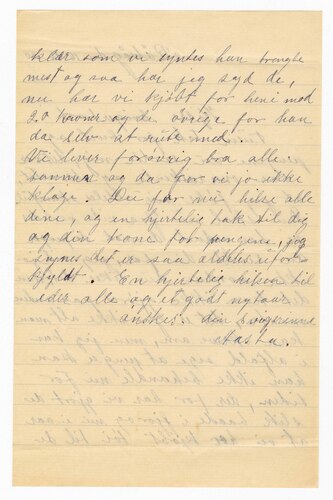 klær som vi syntes han trengte
mest og saa har jeg sagt de,
nu har vi kjøbt for heni med
20 kroner og de øvrige for han
da selv at ruste med.
Vi lever forøvrig bra alle
sammen og da for vi jo ikke
klage. Du for nu hilse alle
dine, og en hjertelig tak til dig
og din kone for pengene, jeg
synes det er saa aldeles ufor-
skyldt. En hjertelig hilsen til
eder alle og et godt nytaar
ønskes din svigerinne
Aasta.